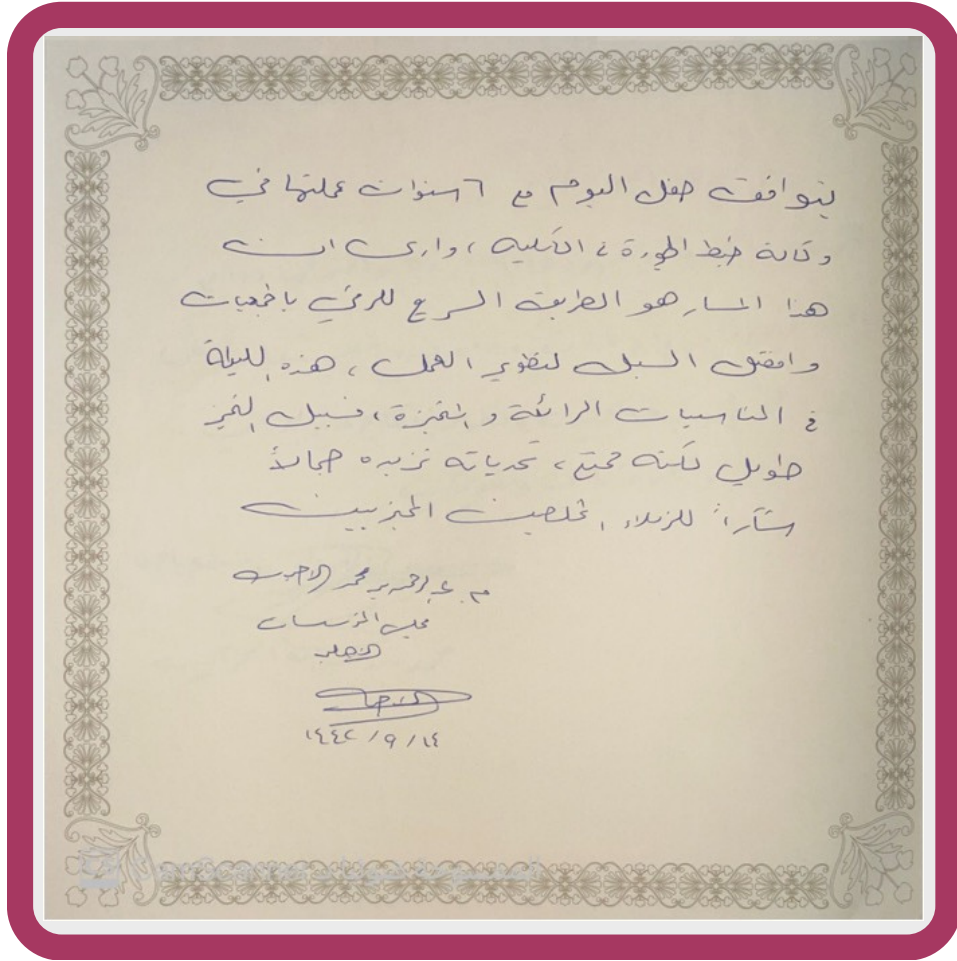 يتوافق حفل اليوم مع ٦ سنوات عملتها في
وكالة ضبط الجودة في الكلية ، وارى ان
هذا المسار هو الطريق السريع للرقي بالجمعيات
وافضل السبل لتطوير العمل ، هذه الليلة
في المناسبات الرائعة و المتميزة ، فسبيل التميز
طويل لكنه ممتع ، تحدياته تزيده جمالاً
شكراً للزملاء المخلصين المتميزين
م. عبدالرحمن بن محمد
مجلس المؤسسات
١٤٤٢/٩/١٤